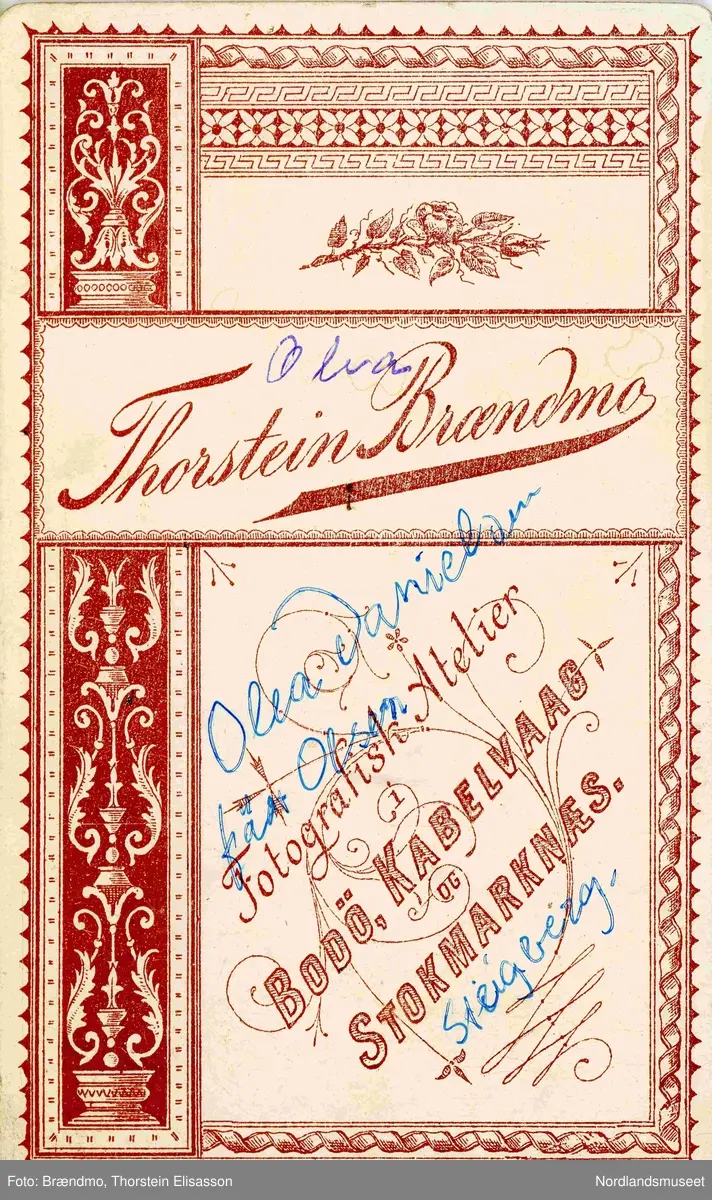 Olea
Thorstein Brændmo
Olea Danielsen
født Olsen
Fotografisk Atelier
i
BODÖ, KABELVAAG
OG
STOKMARKNÆS.
Steigberg.
Foto: Brændmo, Thorstein Elisasson
Nordlandsmuseet